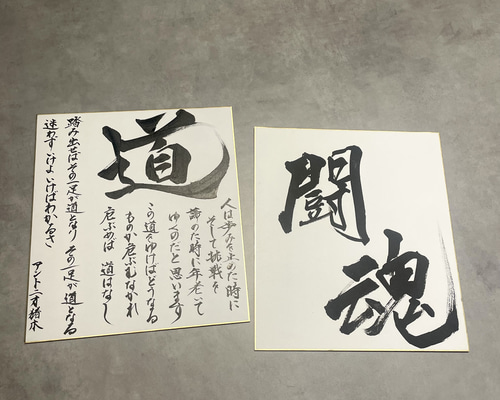 道
人は歩みを止めた時に
そして挑戦を
諦めた時に年老いて
ゆくのだと思います
この道をゆけばどうなる
ものか危ぶむなかれ
危ぶめば 道はなし
踏み出せばその一足が道となり その一足が道となる
迷わず いけよ いけばわかるさ
アントニオ猪木
闘魂